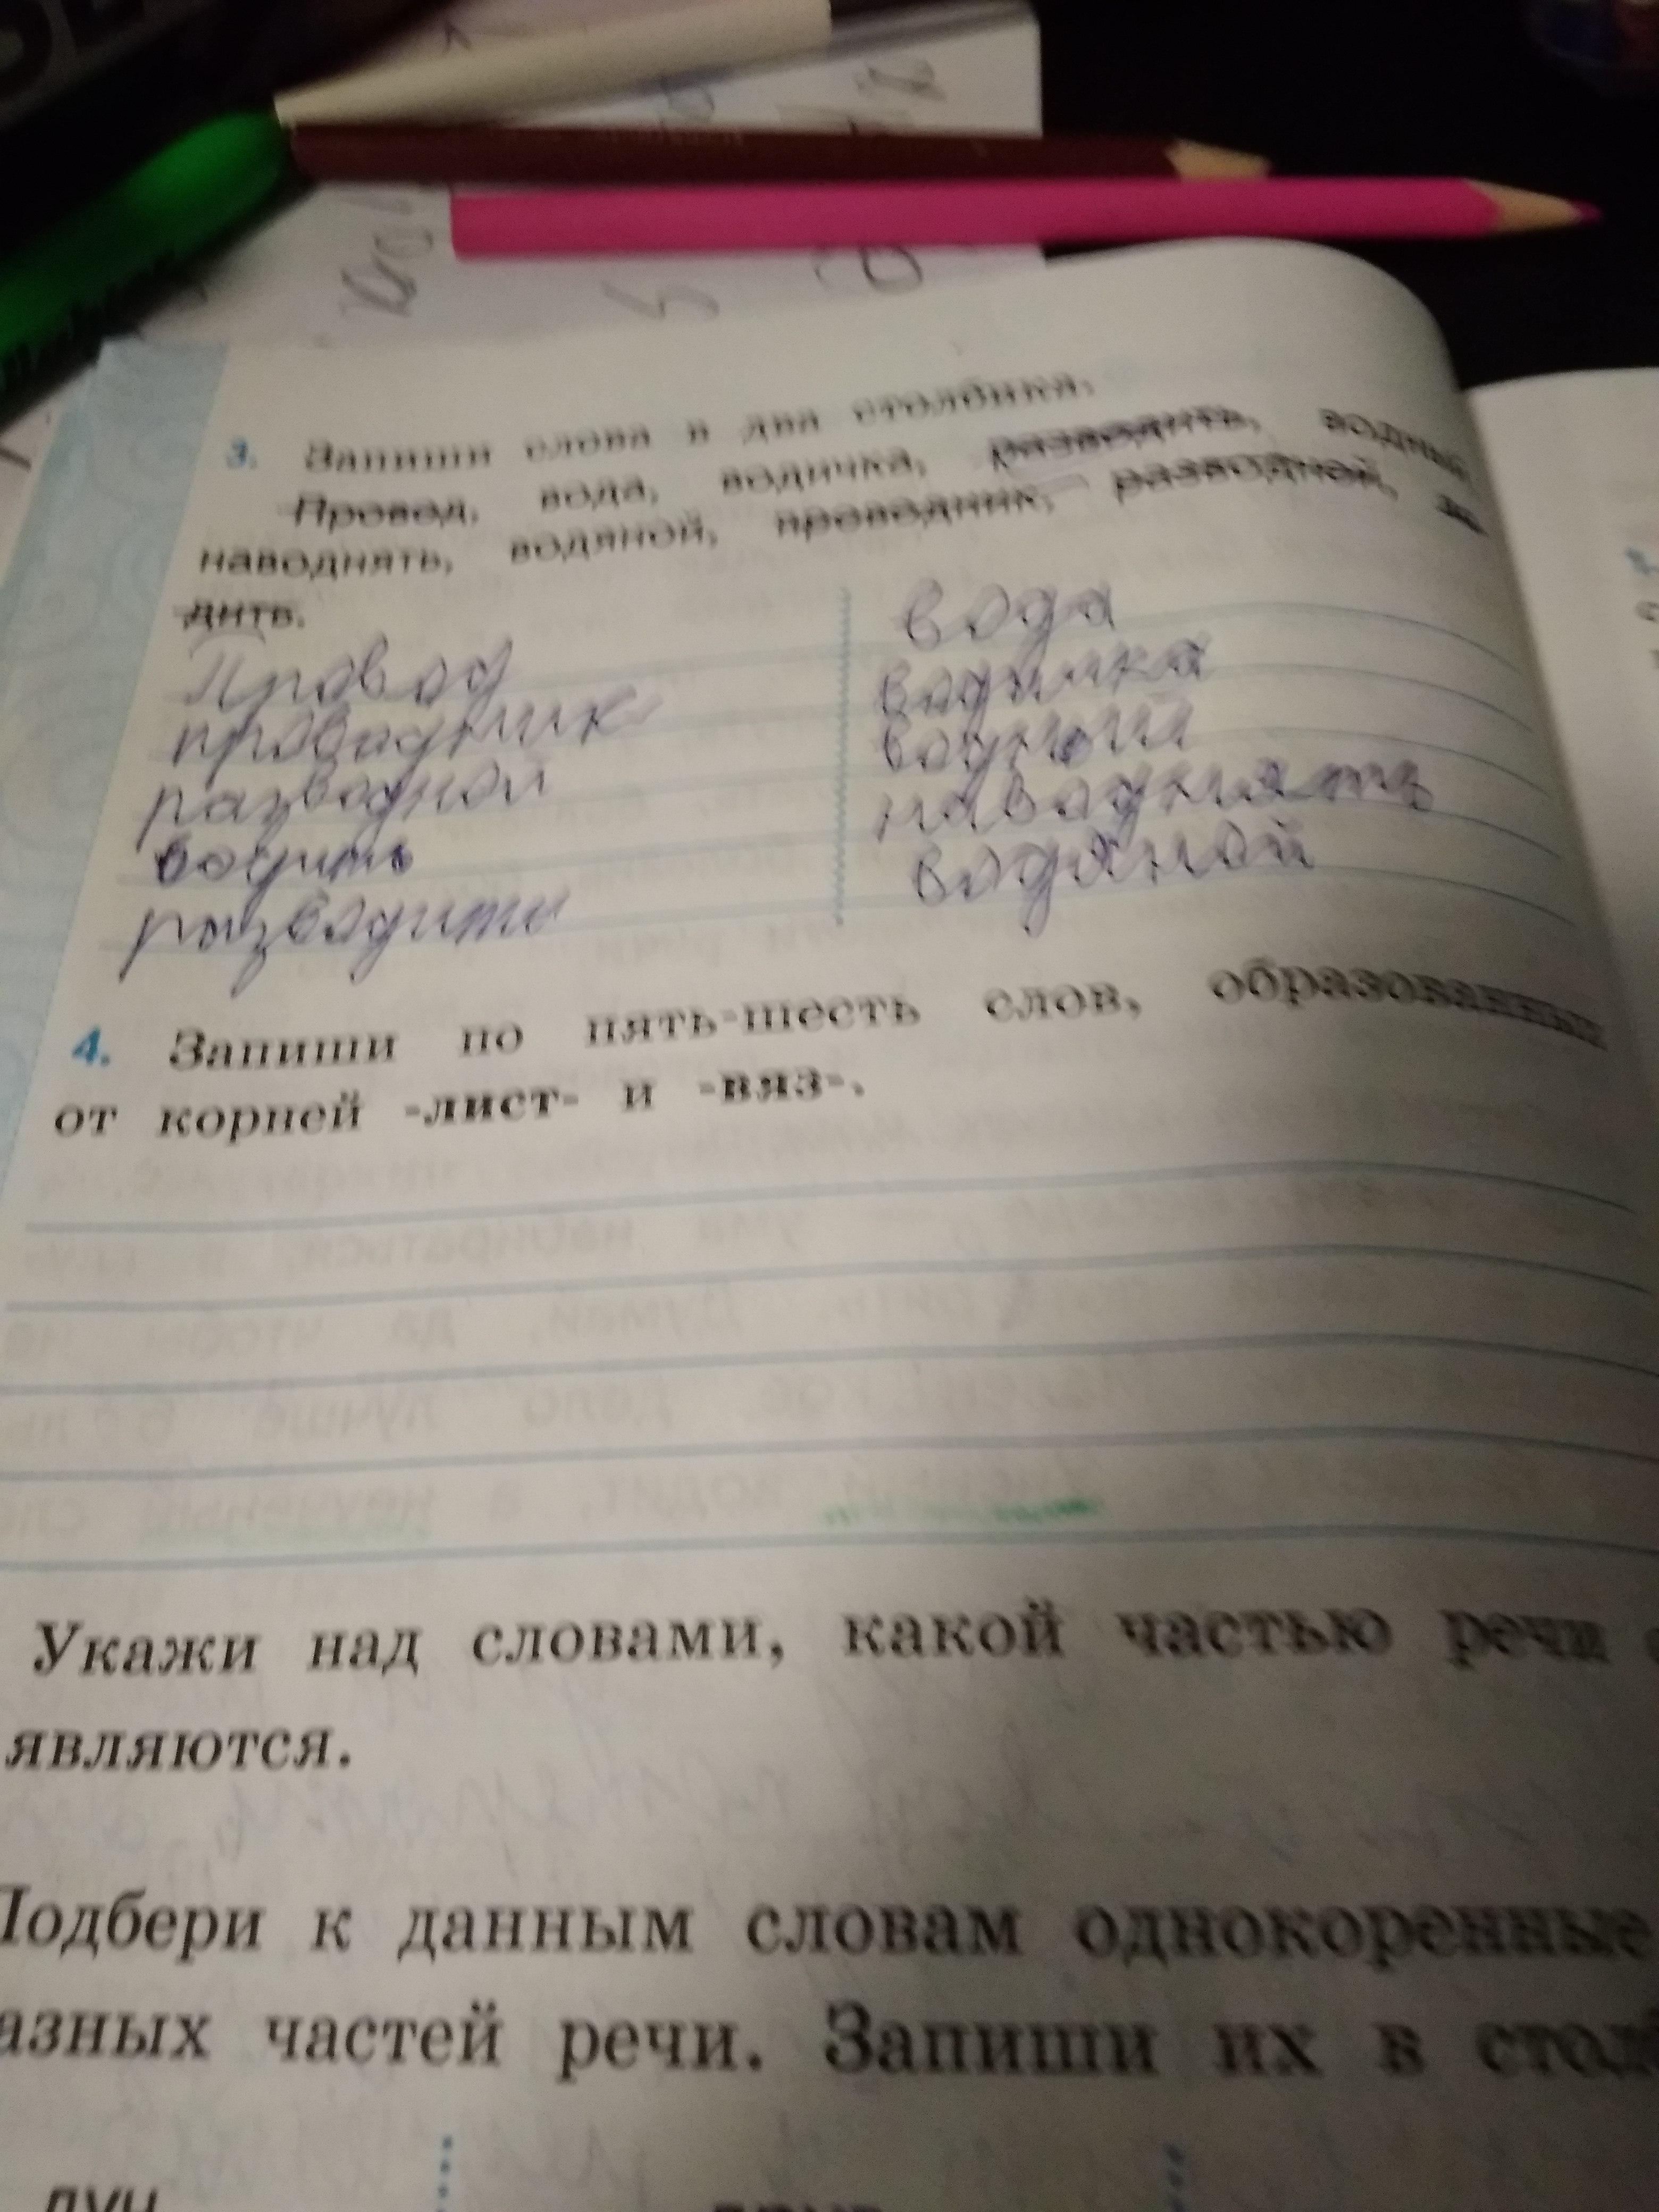 3. Запиши слова в два столбика.
Провод, вода, водичка, разводить, водный,
наводнять, водяной, проводник, разводной,
дить.
Провод
проводник
разводной
водить
разводить
вода
водичка
водный
наводнять
водяной
4. Запиши по пять-шесть слов, образованных
от корней -лист- и -вяз-.
Укажи над словами, какой частью речи
являются.
Подбери к данным словам однокоренные
азных частей речи. Запиши их в стол